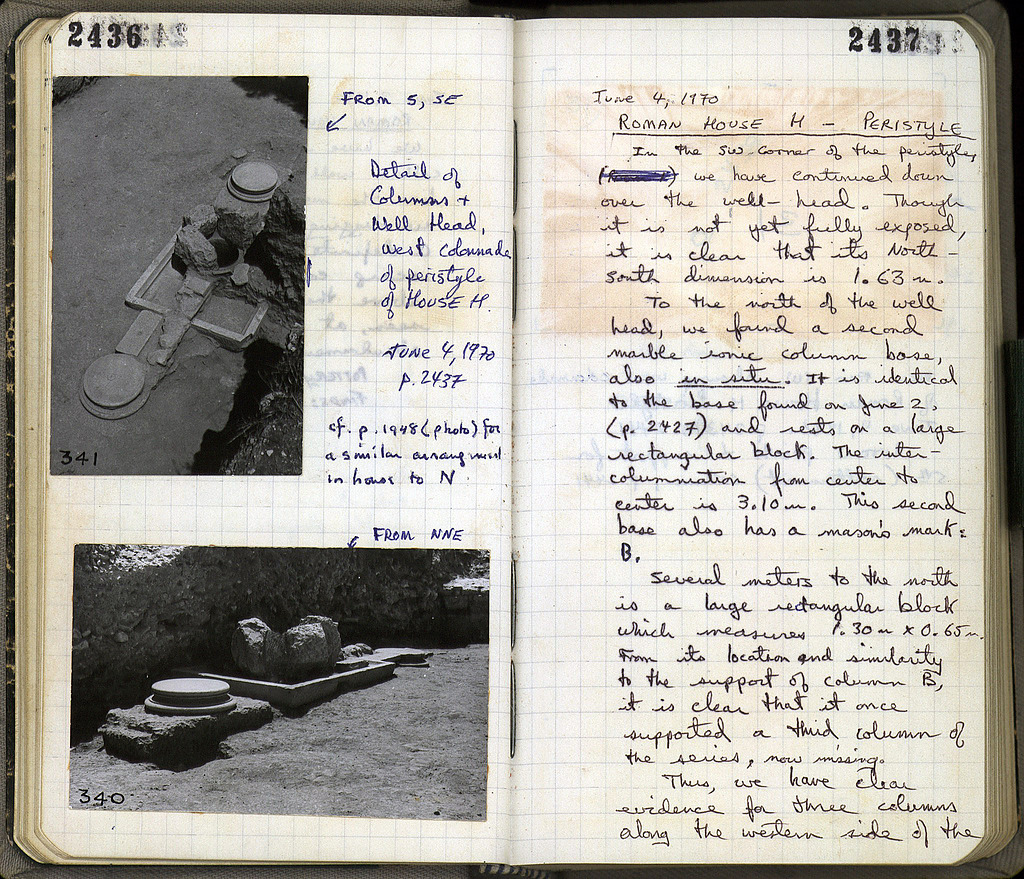 2436
FROM S, SE
Detail of
Columns +
Well Head,
West Colonnade
of peristyle
of HOUSE H.
JUNE 4, 1970
p. 2437
cf. p. 1948 (photo) for
a similar arrangement
in house to N
341
FROM NNE
340
2437
June 4, 1970
ROMAN HOUSE H – PERISTYLE
In the SW corner of the peristyle,
we have continued down
over the well-head. Though
it is not yet fully exposed,
it is clear that its North-
South dimension is 1.63 m.
To the north of the well
head, we found a second
marble ionic column base,
also in situ. It is identical
to the base found on June 2.
(p. 2427) and rests on a large
rectangular block. The inter-
columniation from center to
center is 3.10 m. This second
base also has a mason's mark:
B.
Several meters to the north
is a large rectangular block
which measures 1.30 m x 0.65 m.
From its location and similarity
to the support of column B,
it is clear that it once
supported a third column of
the series, now missing.
Thus, we have clear
evidence for three columns
along the western side of the